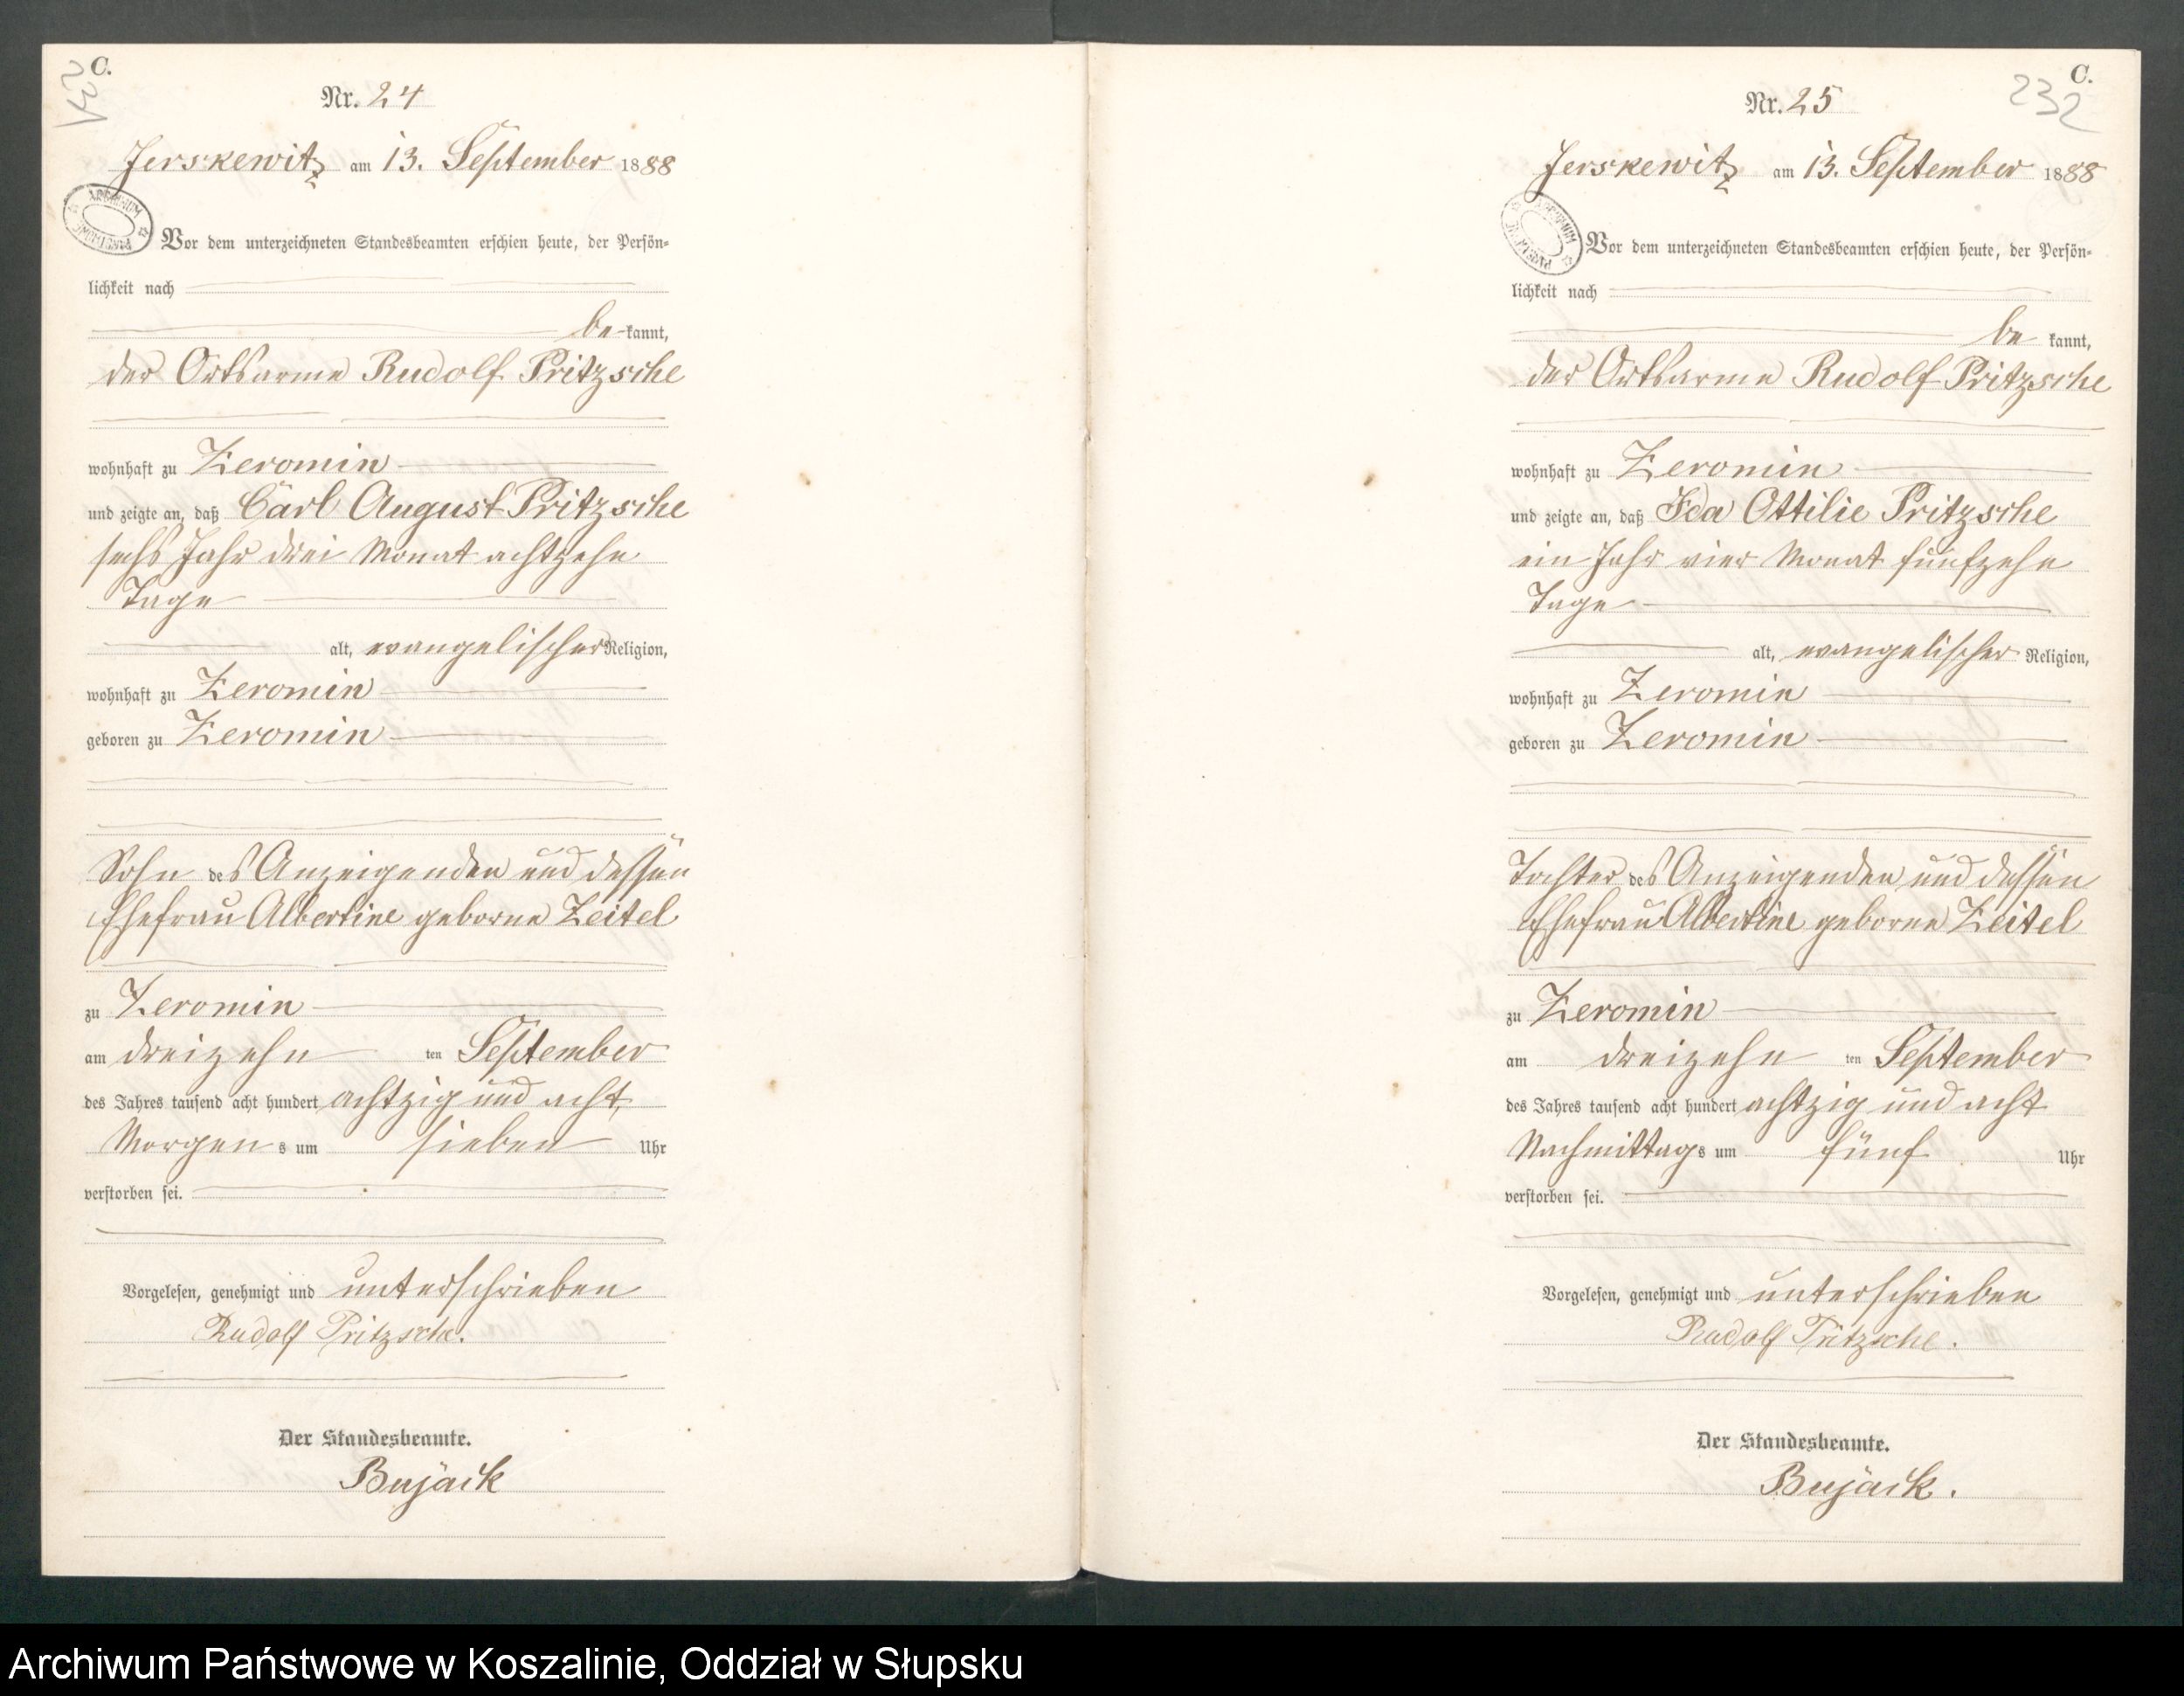 C.
Nr. 24
Jerskewitz am 13. September 1888
ARCHIWUM PAŃSTWOWE
Vor dem unterzeichneten Standesbeamten erschien heute, der Persön-
lichkeit nach
be-kannt,
der Ortsarme Rudolf Pritzsche
wohnhaft zu Zeromin
und zeigte an, daß Carl August Pritzsche
sechs Jahr drei Monat achtzehn
Tage
alt, evangelischer Religion,
wohnhaft zu Zeromin
geboren zu Zeromin
Sohn des Anzeigenden und dessen
Ehefrau Albertine geborne Zeitel
zu Zeromin
am dreizehn ten September
des Jahres tausend acht hundert achtzig und acht,
Morgens um sieben Uhr
verstorben sei.
Vorgelesen, genehmigt und unterschrieben
Rudolf Pritzsche.
Der Standesbeamte.
Bujack
C.
232
Nr. 25
Jerskewitz am 13. September 1888
ARCHIWUM PAŃSTWOWE
Vor dem unterzeichneten Standesbeamten erschien heute, der Persön-
lichkeit nach
be kannt,
der Ortsarme Rudolf Pritzsche
wohnhaft zu Zeromin
und zeigte an, daß Ida Ottilie Pritzsche
ein Jahr vier Monat fünfzehn
Tage
alt, evangelischer Religion,
wohnhaft zu Zeromin
geboren zu Zeromin
Tochter des Anzeigenden und dessen
Ehefrau Albertine geborne Zeitel
zu Zeromin
am dreizehn ten September
des Jahres tausend acht hundert achtzig und acht
Nachmittags um fünf Uhr
verstorben sei.
Vorgelesen, genehmigt und unterschrieben
Rudolf Pritzsche.
Der Standesbeamte.
Bujack.
Archiwum Państwowe w Koszalinie, Oddział w Słupsku